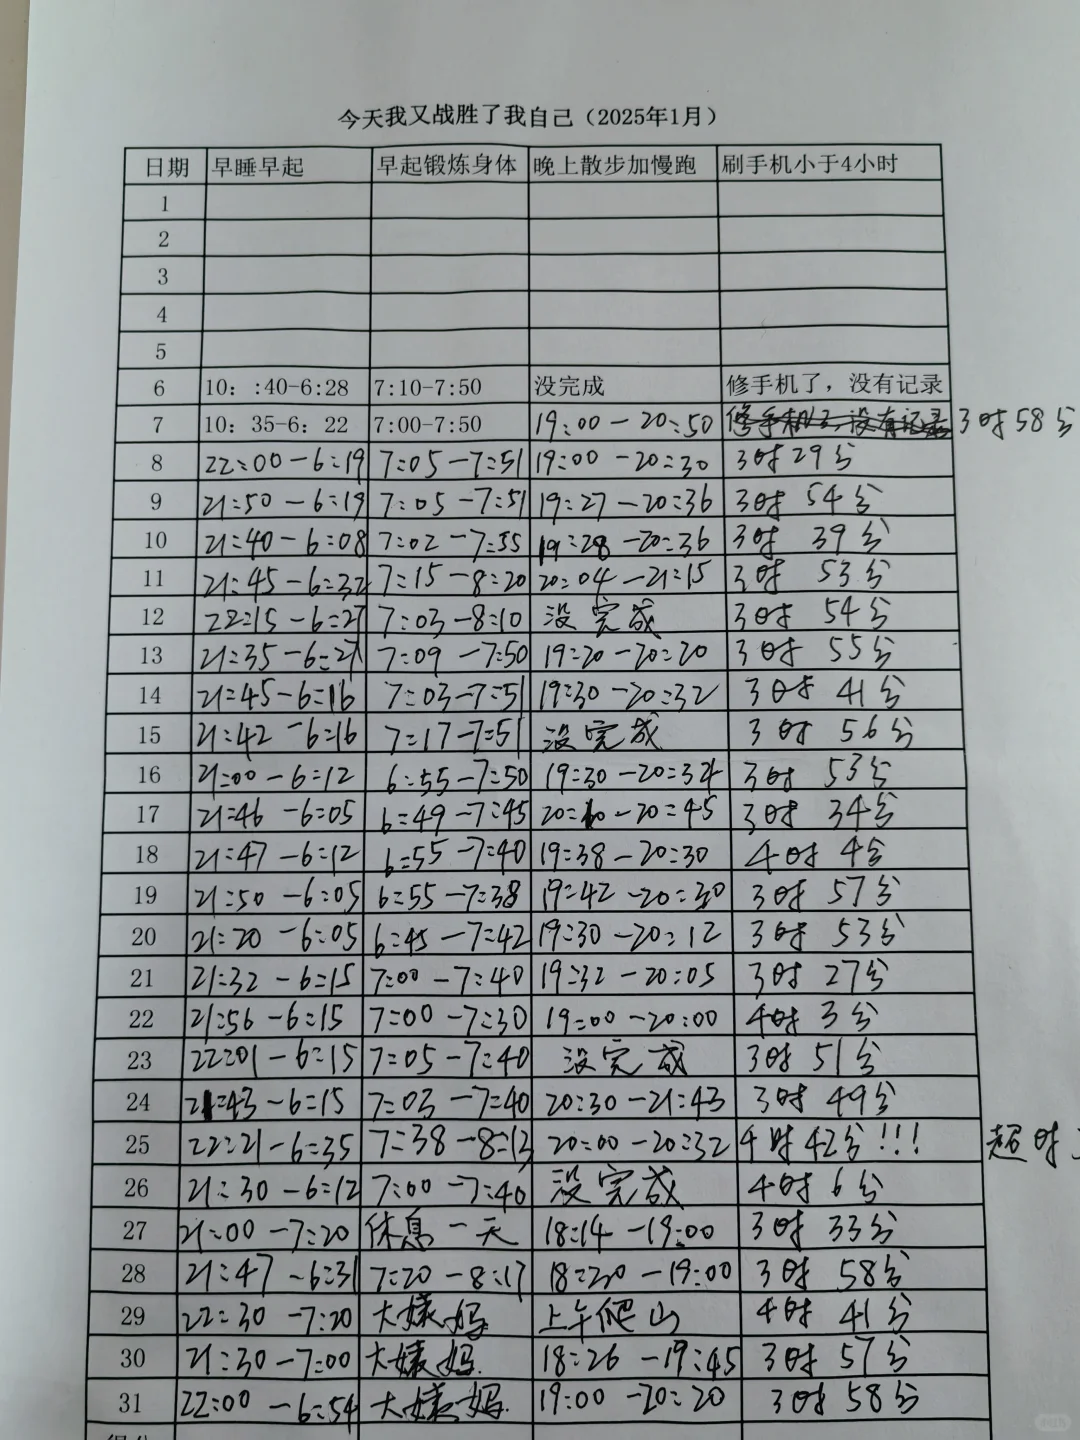 今天我又战胜了我自己（2025年1月）
日期 早睡早起 早起锻炼身体 晚上散步加慢跑 刷手机小于4小时
1
2
3
4
5
6 10：:40-6:28 7:10-7:50 没完成 修手机了，没有记录
7 10：35-6：22 7:00-7:50 19:00-20:50 修手机了没有记录 3时58分
8 22:00-6:19 7:05-7:51 19:00-20:30 3时29分
9 21:50-6:19 7:05-7:51 19:27-20:36 3时54分
10 21:40-6:08 7:02-7:35 19:28-20:36 3时39分
11 21:45-6:32 7:15-8:20 20:04-21:15 3时53分
12 22:15-6:27 7:03-8:10 没完成 3时54分
13 21:35-6:27 7:09-7:50 19:20-20:20 3时55分
14 21:45-6:16 7:03-7:51 19:30-20:32 3时41分
15 21:42-6:16 7:17-7:51 没完成 3时56分
16 21:00-6:12 6:55-7:50 19:30-20:34 3时53分
17 21:46-6:05 6:49-7:45 20:10-20:45 3时34分
18 21:47-6:12 6:55-7:40 19:38-20:30 4时4分
19 21:50-6:05 6:55-7:38 19:42-20:30 3时57分
20 21:20-6:05 6:45-7:42 19:30-20:12 3时53分
21 21:32-6:15 7:00-7:40 19:32-20:05 3时27分
22 21:56-6:15 7:00-7:30 19:00-20:00 4时3分
23 22:01-6:15 7:05-7:40 没完成 3时51分
24 21:43-6:15 7:03-7:40 20:30-21:43 3时49分
25 22:21-6:35 7:38-8:13 20:00-20:32 4时42分!!! 超时
26 21:30-6:12 7:00-7:40 没完成 4时6分
27 21:00-7:20 休息一天 18:14-19:00 3时33分
28 21:47-6:31 7:20-8:17 18:20-19:00 3时58分
29 22:30-7:20 大姨妈 上午爬山 4时41分
30 21:30-7:00 大姨妈. 18:26-19:45 3时57分
31 22:00-6:54 大姨妈. 19:00-20:20 3时58分